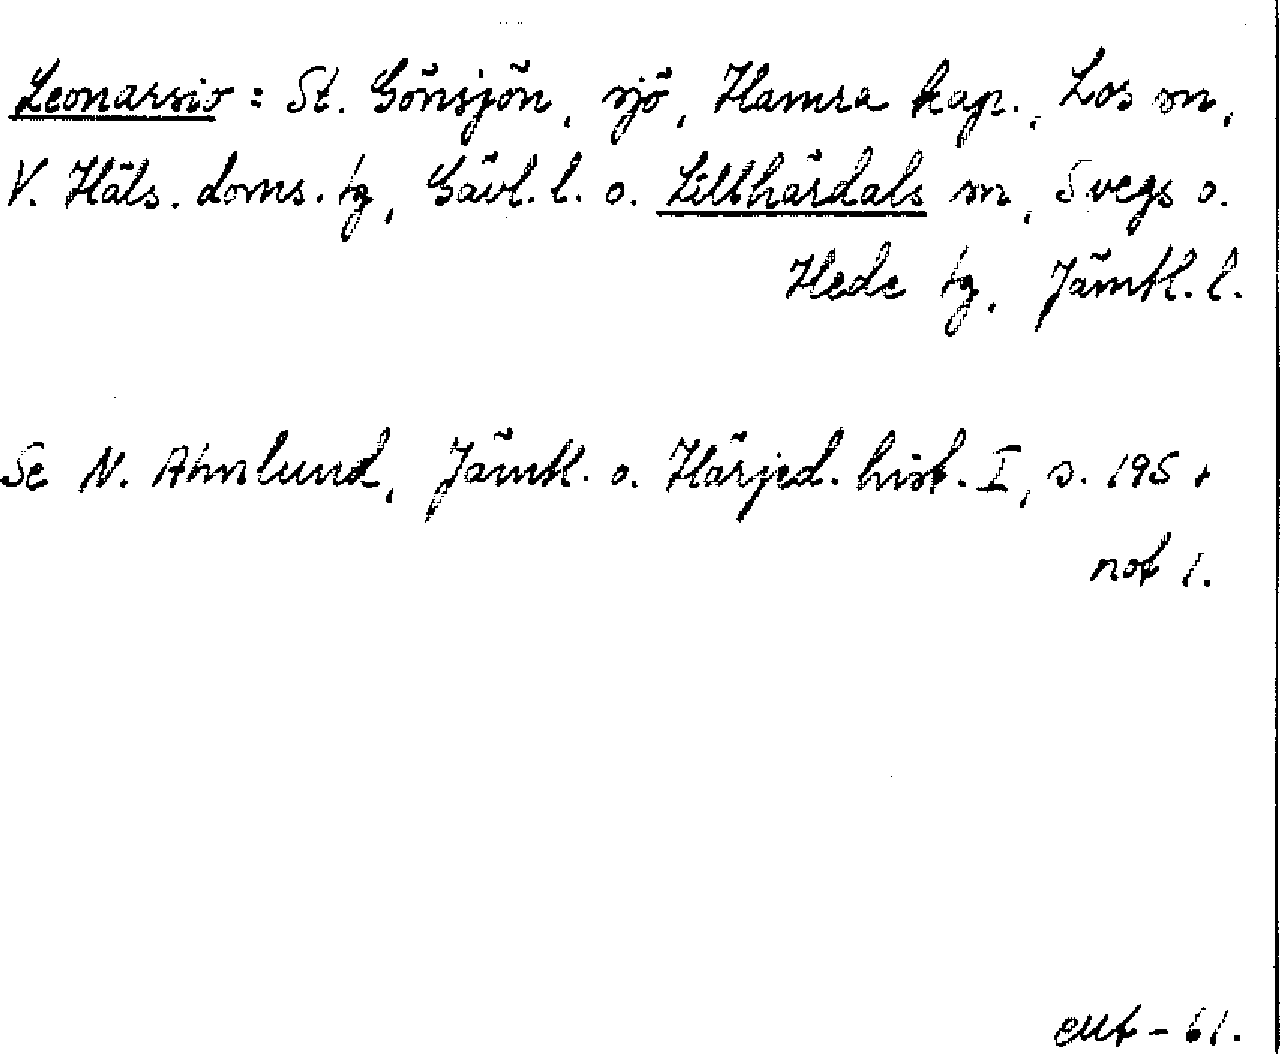 Leonarsio: St. Gönsjön, sjö, Hamra kap., Los sn,
V. Häls. doms. tg, Gävl. l. o. Lillhärdals sn, Svegs o.
Hede tg, Jämtl. l.
Se N. Ahnlund, Jämtl. o. Härjed. hist. I, s. 195 +
not 1.
-61.